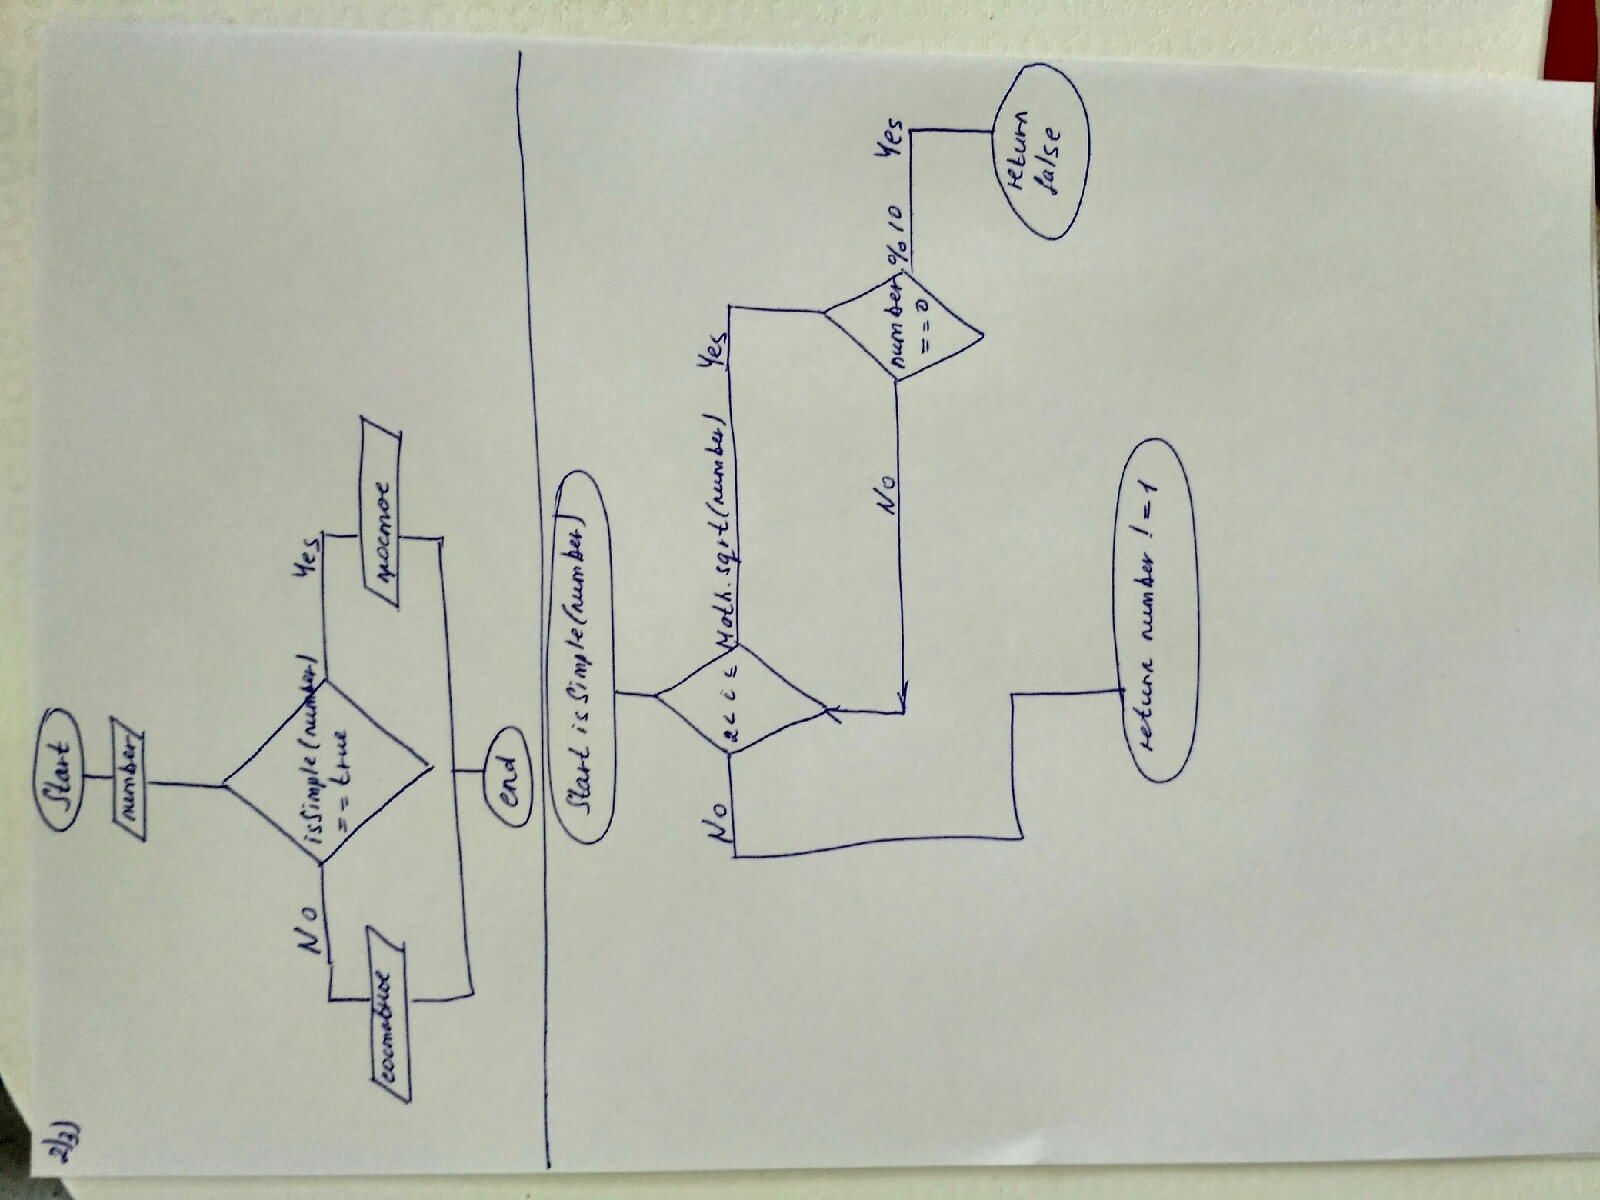 2)3)
Start
number
isSimple(number)
== true
No
Yes
составное
простое
end
Start isSimple(number)
2 < i ≤ Math.sqrt(number)
Yes
No
number % 10
== 0
Yes
No
return
false
return number != 1